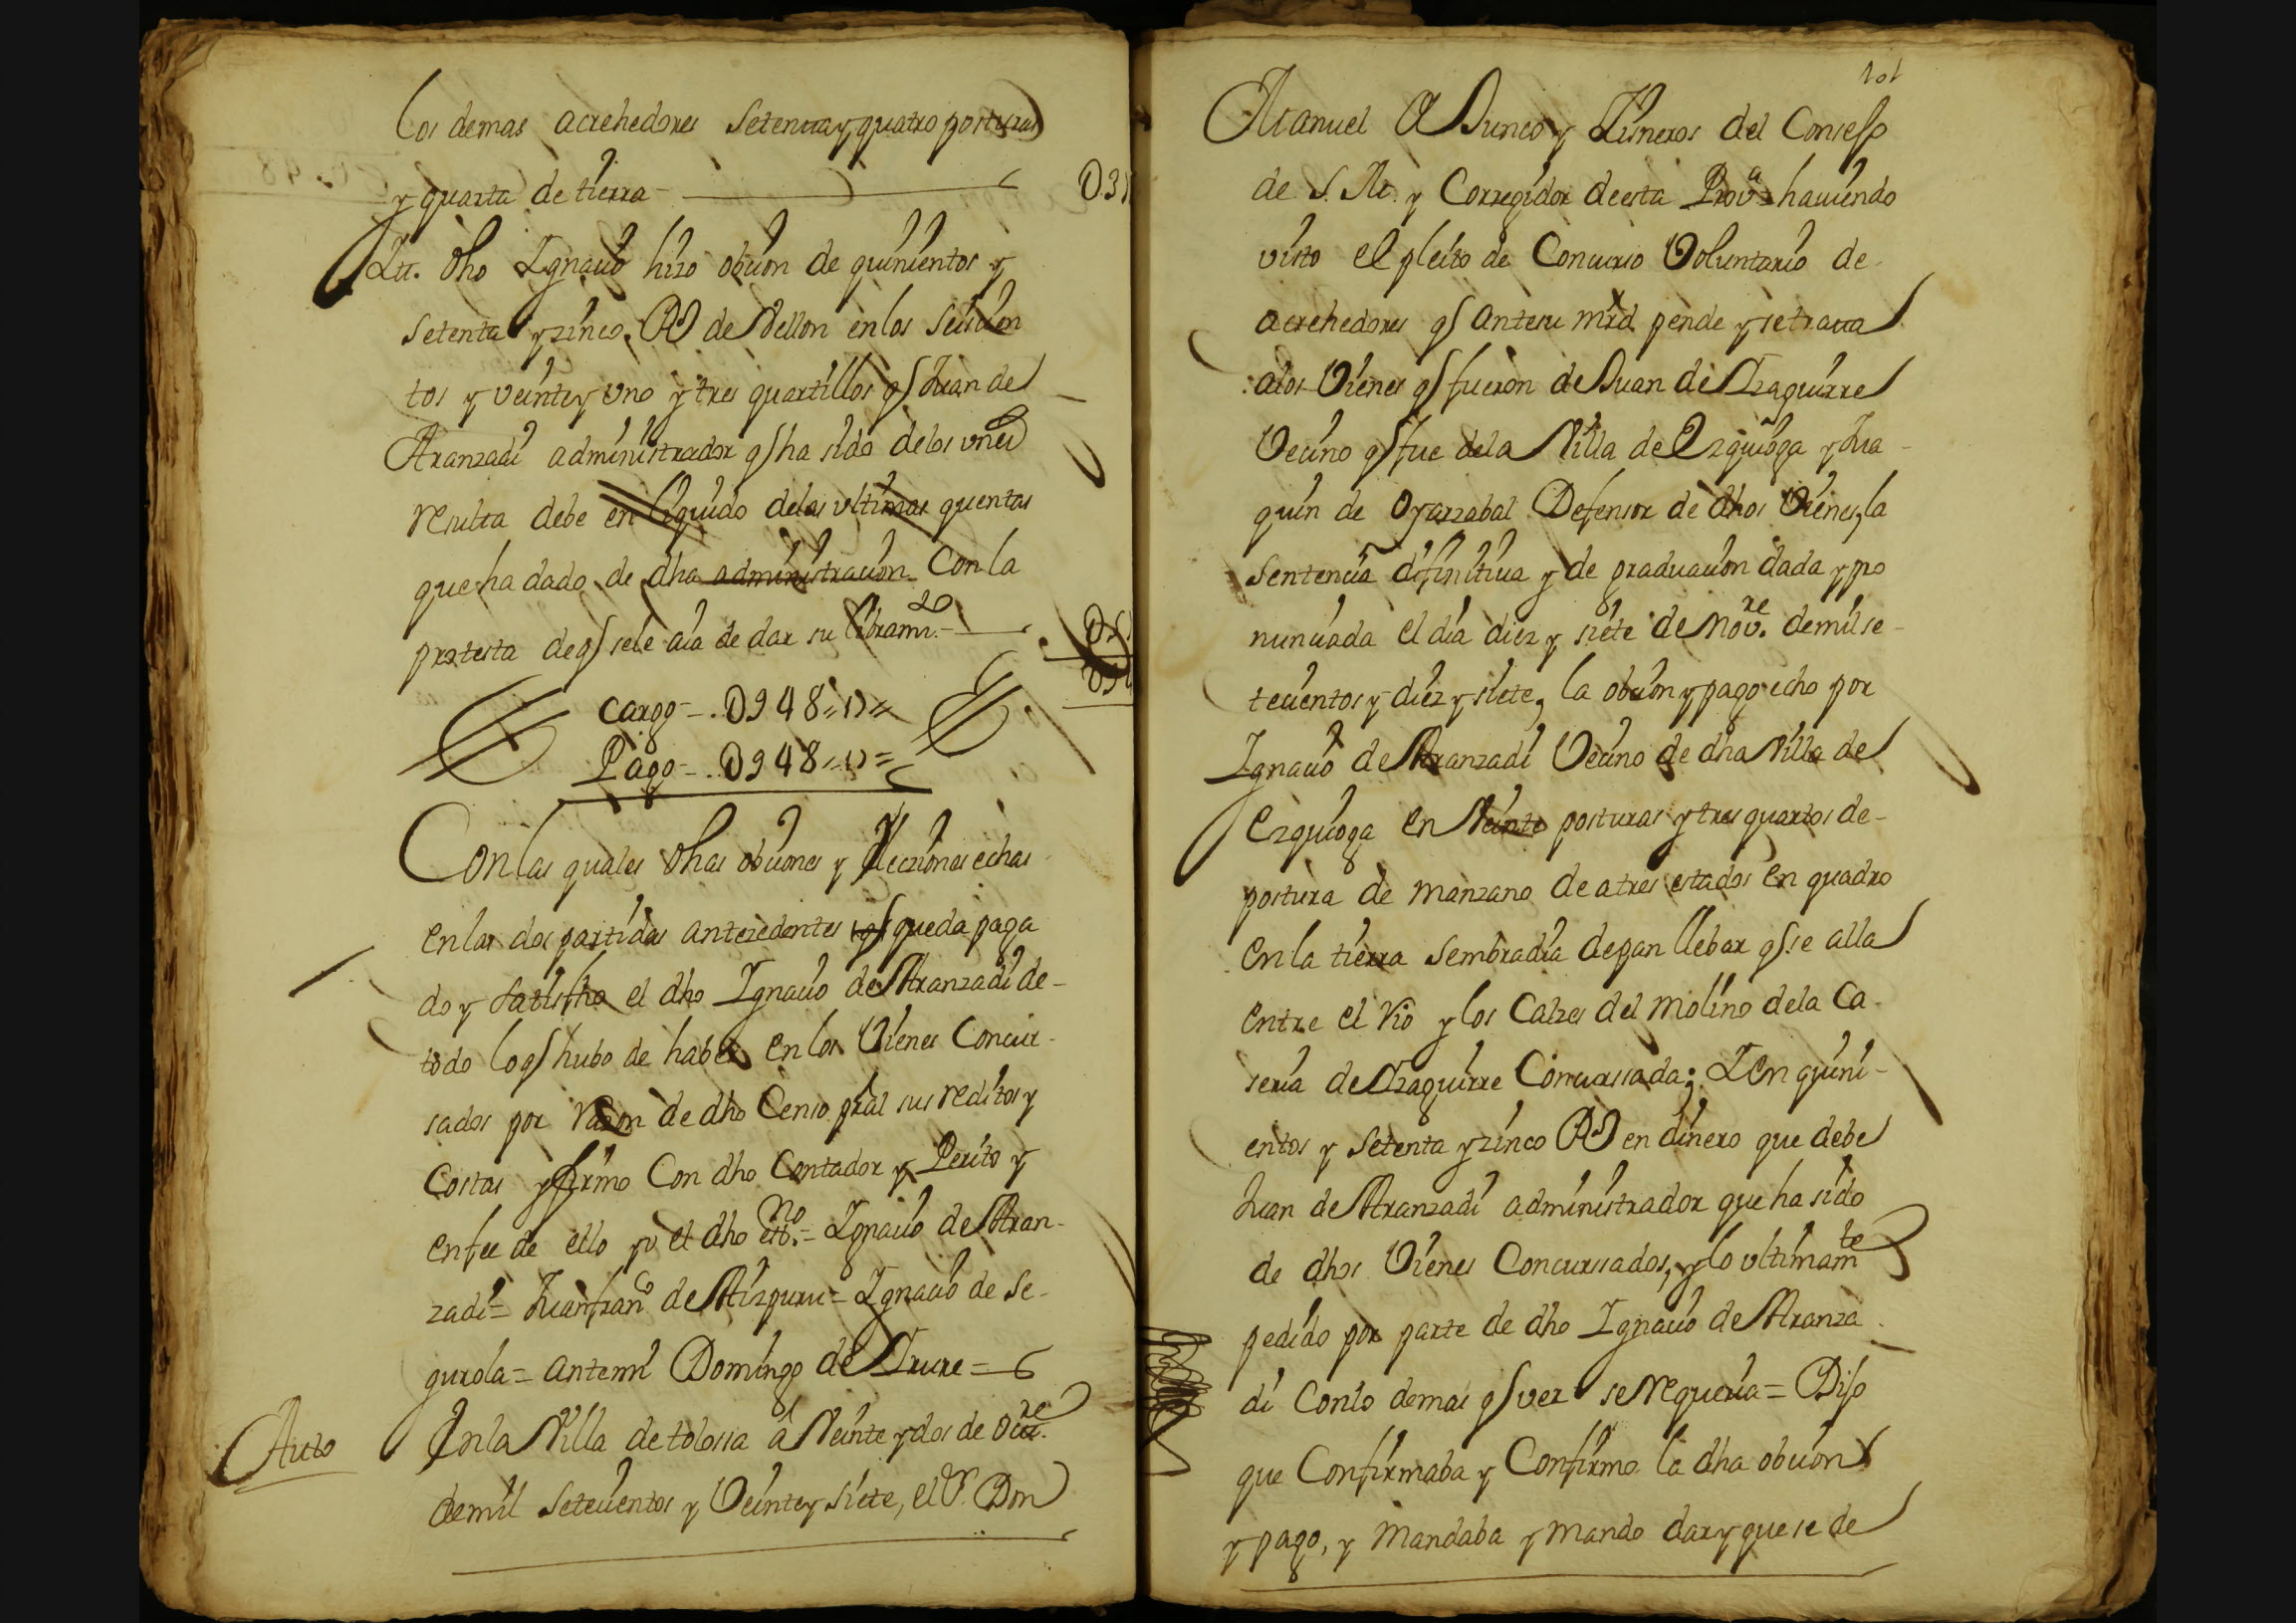 los demas acrehedores setenta y quatro posturas
y quarta de tierra
Itt. dho Ignacio hizo obcion de quinientos y
setenta y zinco Rs de Vellon en los seiscien
tos y veinte y uno y tres quartillos q Juan de
Aranzadi administrador q ha sido de los vnes
resulta debe en liquido de las vltimas quentas
que ha dado de dha administracion con la
protesta de q sele aia de dar su libram.to
Cargo - . D948 =
Pago - . D948 =
Con las quales dhas obciones y elecziones echas
en las dos partidas antezedentes queda paga
do y satisfho el dho Ignacio de Aranzadi de
todo lo q hubo de haber en los Vienes Concur
sados por razon de dho Censo pral sus reditos y
Costas y firmo Con dho Contador y Perito y
en fee de ello yo el dho no = Ignacio de Aran
zadi = Juan fran.co de Aizpuru = Ignacio de Se
gurola = antemi Domingo de Irure =
Auto
En la Villa de tolossa a Veinte y dos de re
de mil setecientos y Veinte y siete, el S.r Don
101
Manuel A Junco y Zisneros del Consejo
de S. M. y Corregidor de esta Prov.a haviendo
visto el pleito de Concurso Voluntario de
acrehedores q ante su mrd pende y se trata
a los Vienes q fueron de Juan de Izaguirre
Vecino q fue de la Villa de Ezquioga y Jua
quin de Oyarzabal Defensor de dhos Vienes, la
sentencia difinitiva y de graduacion dada y pro
nunciada el dia diez y siete de Nov.re de mil se
tecientos y diez y siete, la obcion y pago echo por
Ignacio de Aranzadi Vecino de dha Villa de
Ezquioga en Veinte posturas y tres quartos de
postura de manzano de a tres estados en quadro
en la tierra sembradia de pan llebar q se alla
entre el rio y los Calzes del molino de la Ca
seria de Izaguirre Concurssada; I en quini
entos y setenta y zinco Rs en dinero que debe
Juan de Aranzadi administrador que ha sido
de dhos Vienes Concurssados, y lo vltimam.te
pedido por parte de dho Ignacio de Aranza
di Con lo demas q ver se requeria = Dijo
que Confirmaba y Confirmo la dha obcion
y pago, y mandaba y mando dar y que se de